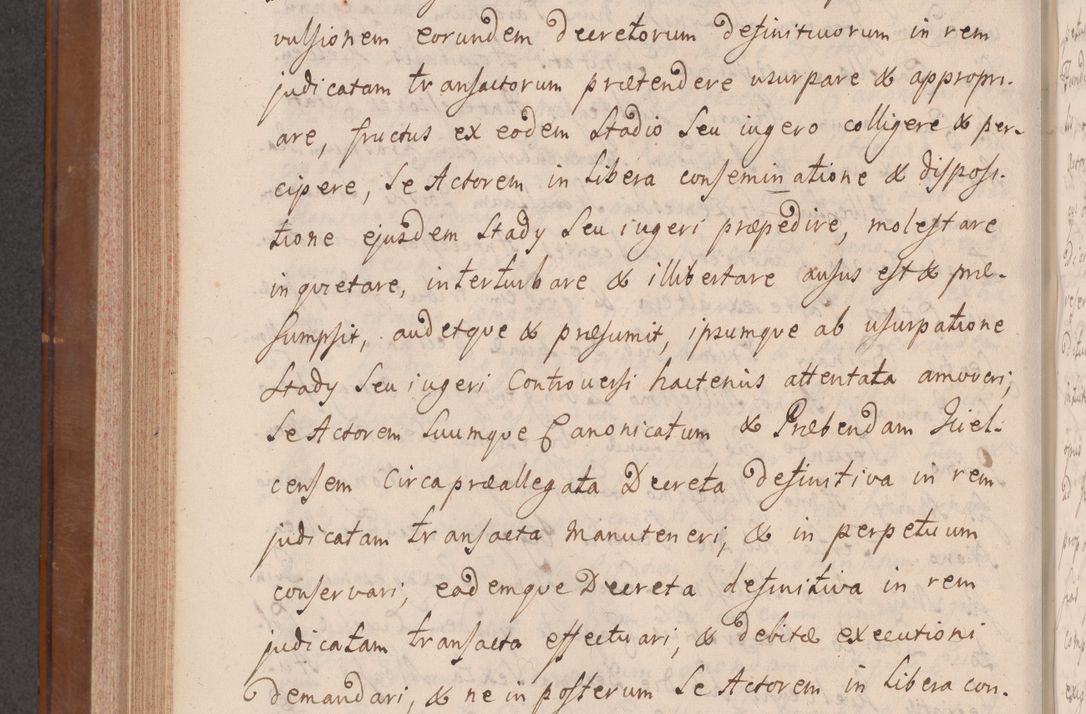 vulsionem eorundem decretorum definitivorum in rem
judicatam transactorum prætendere usurpare & appropri-
are, fructus ex eodem Stadio seu iugero colligere & per-
cipere, se Actorem in libera conseminatione & disposi-
tione ejusdem Stady seu iugeri præpedire, molestare
inquietare, interturbare & illibertare ausus est & præ-
sumpsit, audetque & præsumit, ipsumque ab usurpatione
Stady seu iugeri Controversi hactenus attentata amoveri,
se Actorem suumque Canonicatum & Præbendam Kiel-
censem Circa præallegata Decreta definitiva in rem
judicatam transacta manuteneri, & in perpetuum
conservari, eademque Decreta definitiva in rem
judicatam transacta effectuari, & debitæ executioni
demandari, & ne in posterum se Actorem in libera con-